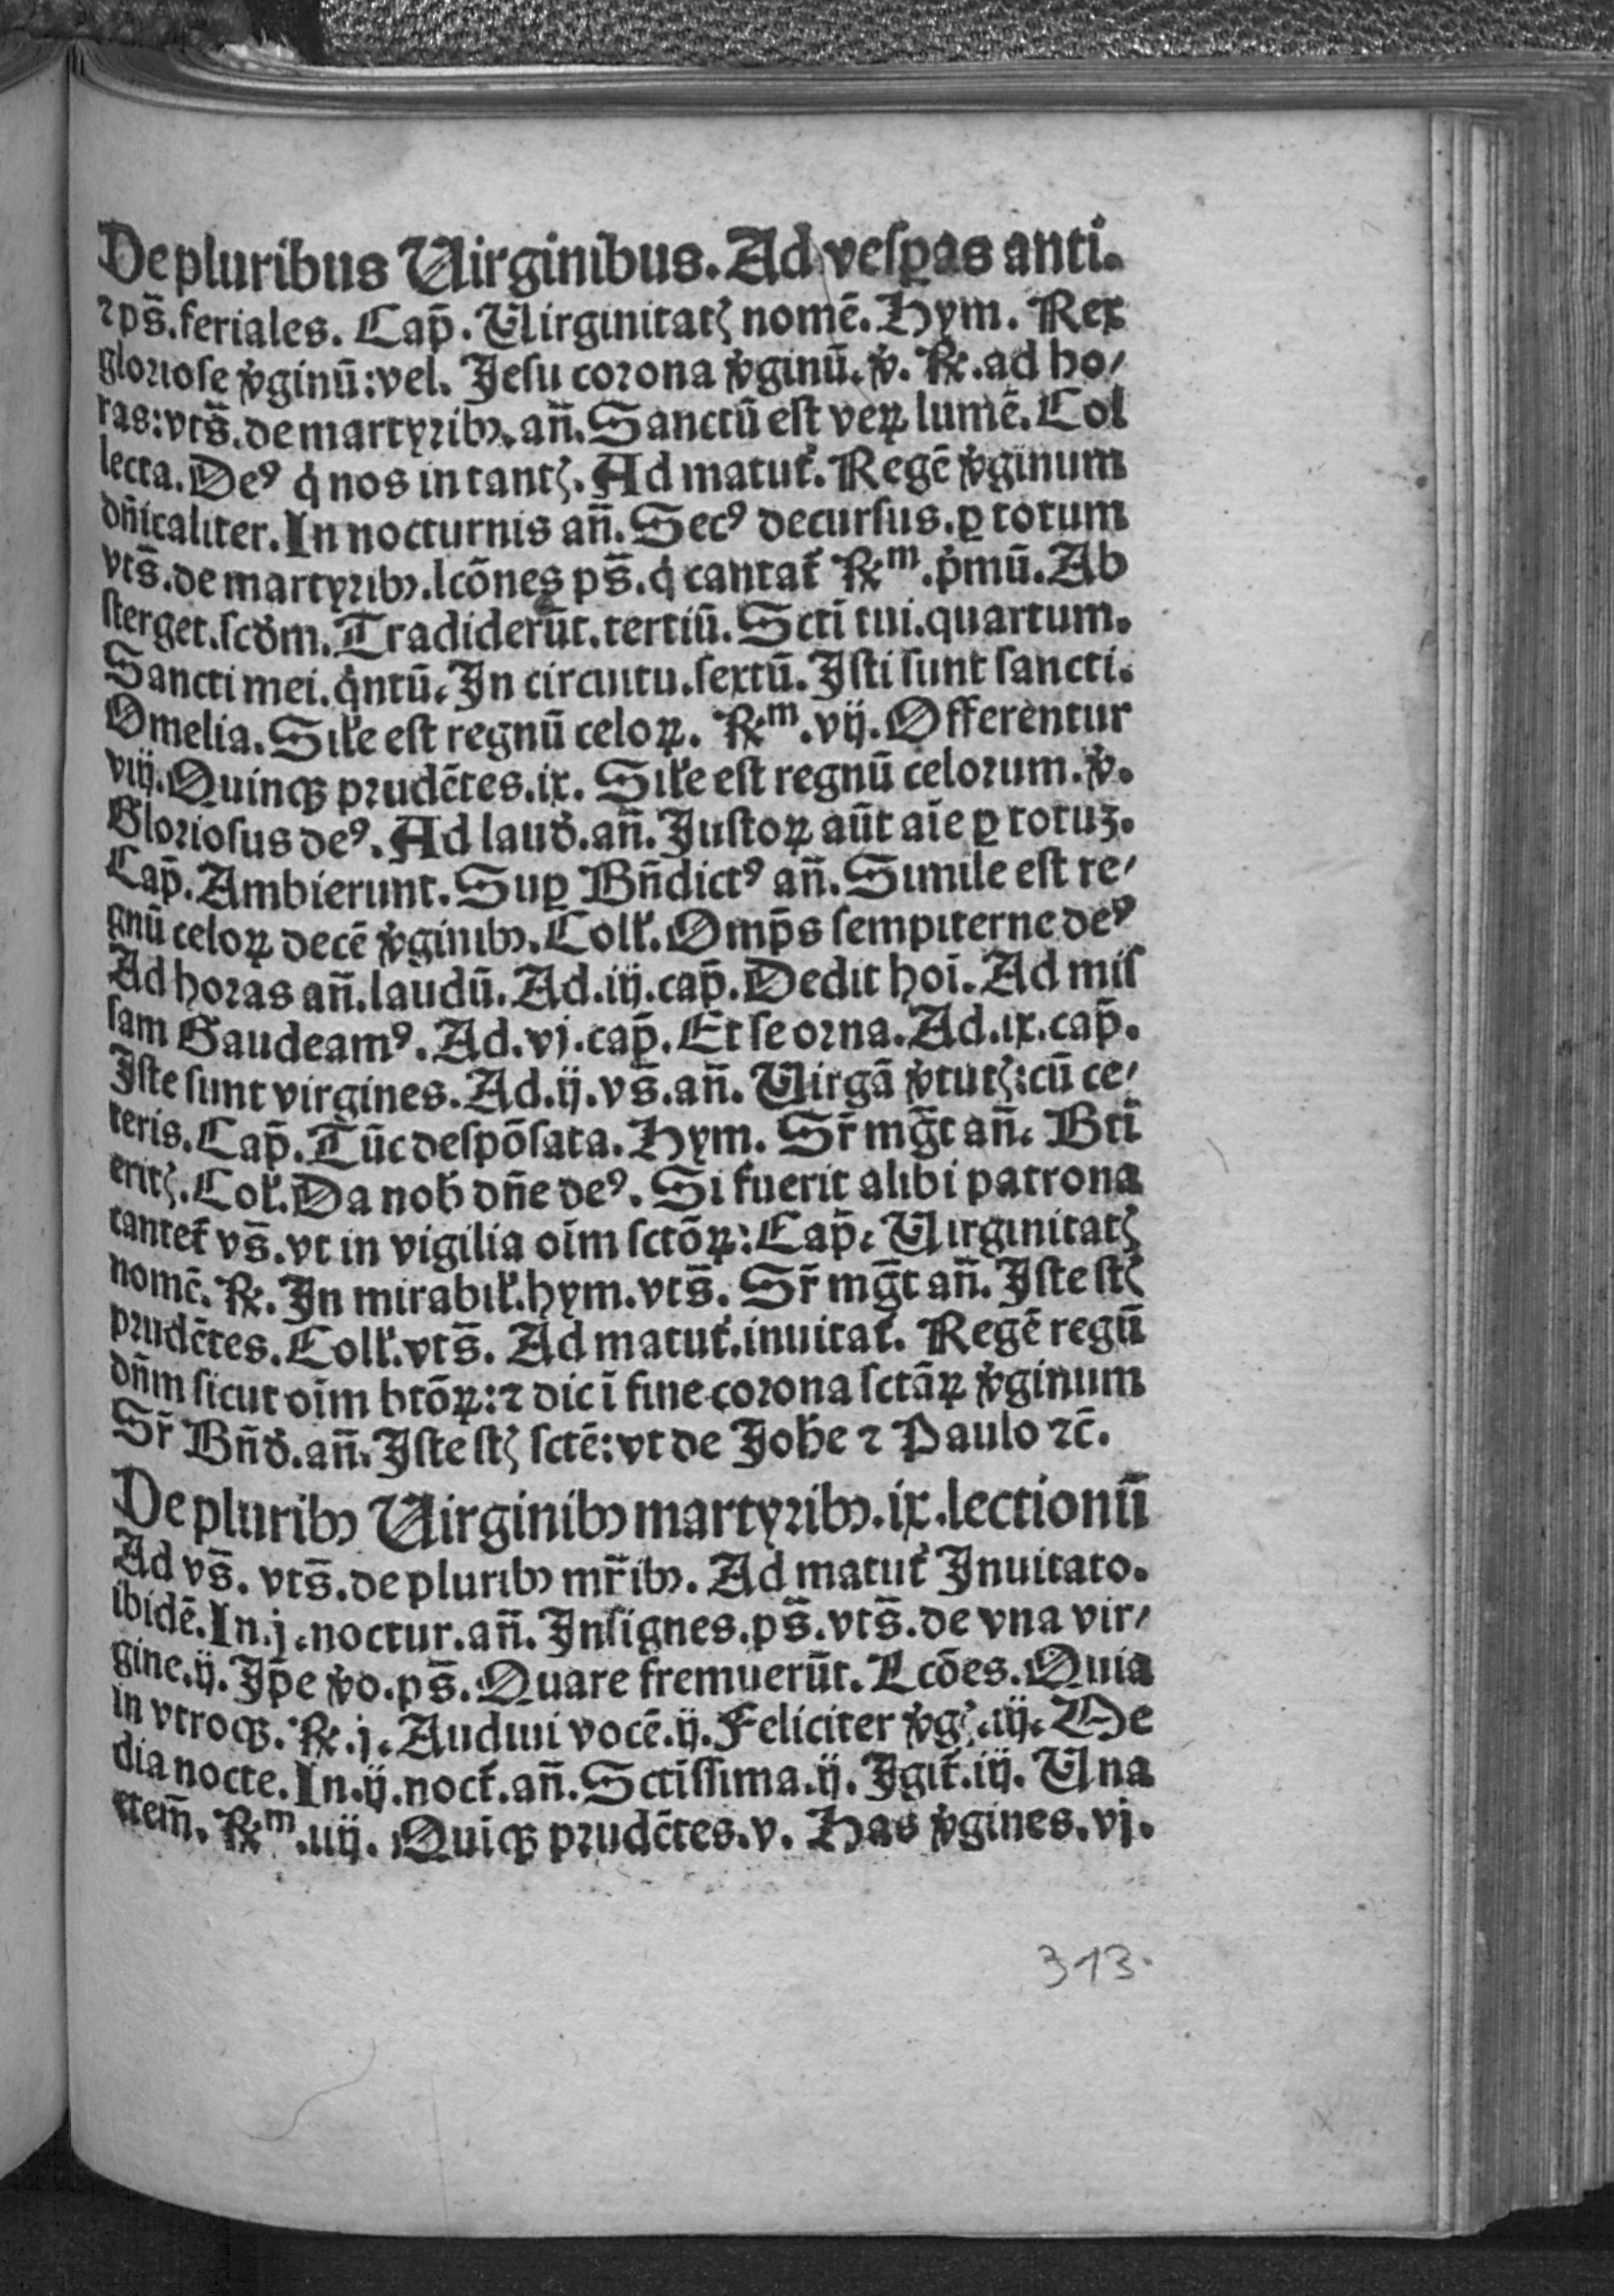 De pluribus Uirginibus. Ad vesꝑas anti.
⁊ ps̄. feriales. Cap̄. Uirginitatꝭ nomē. Hym. Rex
gloriose v̓ginū: vel. Jesu corona v̓ginū. v̓. ℞. ad ho⸗
ras: vts̄. de martyribꝰ. an̄. Sanctū est veꝝ lumē. Col
lecta. Deꝰ q̇ nos in tantꝭ. Ad matut̓. Regē v̓ginum
dn̄icaliter. In nocturnis an̄. Secꝰ decursus. ꝑ totum
vts̄. de martyribꝰ. lcōnes ps̄. q̇ cantat̓ ℞ᵐ. p̓mū. Ab
sterget. scd̓m. Tradiderūt. tertiū. Sctī tui. quartum.
Sancti mei. q̇ntū. In circuitu. sextū. Isti sunt sancti.
Omelia. Sil̓e est regnū celoꝝ. ℞ᵐ. vij. Offerentur
viij. Quinqꝫ prudētes. ix. Sil̓e est regnū celorum. v̓.
Gloriosus deꝰ. Ad laud̓. an̄. Justoꝝ aūt aīe ꝑ totuꝫ.
Cap̄. Ambierunt. Suꝑ Bn̄dictꝰ an̄. Simile est re⸗
gnū celoꝝ decē v̓ginibꝰ. Coll̓. Omp̄s sempiterne deꝰ
Ad horas an̄. laudū. Ad. iij. cap̄. Dedit hoī. Ad mis
sam Gaudeamꝰ. Ad. vj. cap̄. Et se orna. Ad. ix. cap̄.
Iste sunt virgines. Ad. ij. vs̄. an̄. Uirgā v̓tutꝭ: cū ce⸗
teris. Cap̄. Tūc despōsata. Hym. Sr̄ mḡt an̄. Btī
eritꝭ. Col̓. Da nob̓ dn̄e deꝰ. Si fuerit alibi patrona
cantet̓ vs̄. vt in vigilia oīm sctōꝝ: Cap̄. Uirginitatꝭ
nomē. ℞. In mirabil̓. hym. vts̄. Sr̄ mḡt an̄. Iste stꝭ
prudētes. Coll̓. vts̄. Ad matut̓. inuitat̓. Regē regū
dn̄m sicut oīm btōꝝ: ⁊ dic ī fine corona sctāꝝ v̓ginum
Sr̄ Bn̄d̓. an̄. Iste stꝭ sctē: vt de Joh̓e ⁊ Paulo ⁊c̄.
De pluribꝰ Uirginibꝰ martyribꝰ. ix. lectionū
Ad vs̄. vts̄. de pluribꝰ mr̄ibꝰ. Ad matut̓ Inuitato.
ibidē. In. j. noctur. an̄. Insignes. ps̄. vts̄. de vna vir⸗
gine. ij. Ip̄e v̓o. ps̄. Quare fremuerūt. Lcōes. Quia
in vtroqꝫ. ℞. j. Audiui vocē. ij. Feliciter v̓gꝭ. iij. Me
dia nocte. In. ij. noct̓. an̄. Sctīssima. ij. Igit̓. iij. Una
etem̄. ℞ᵐ. iiij. Quīqꝫ prudētes. v. Has v̓gines. vj.
313.